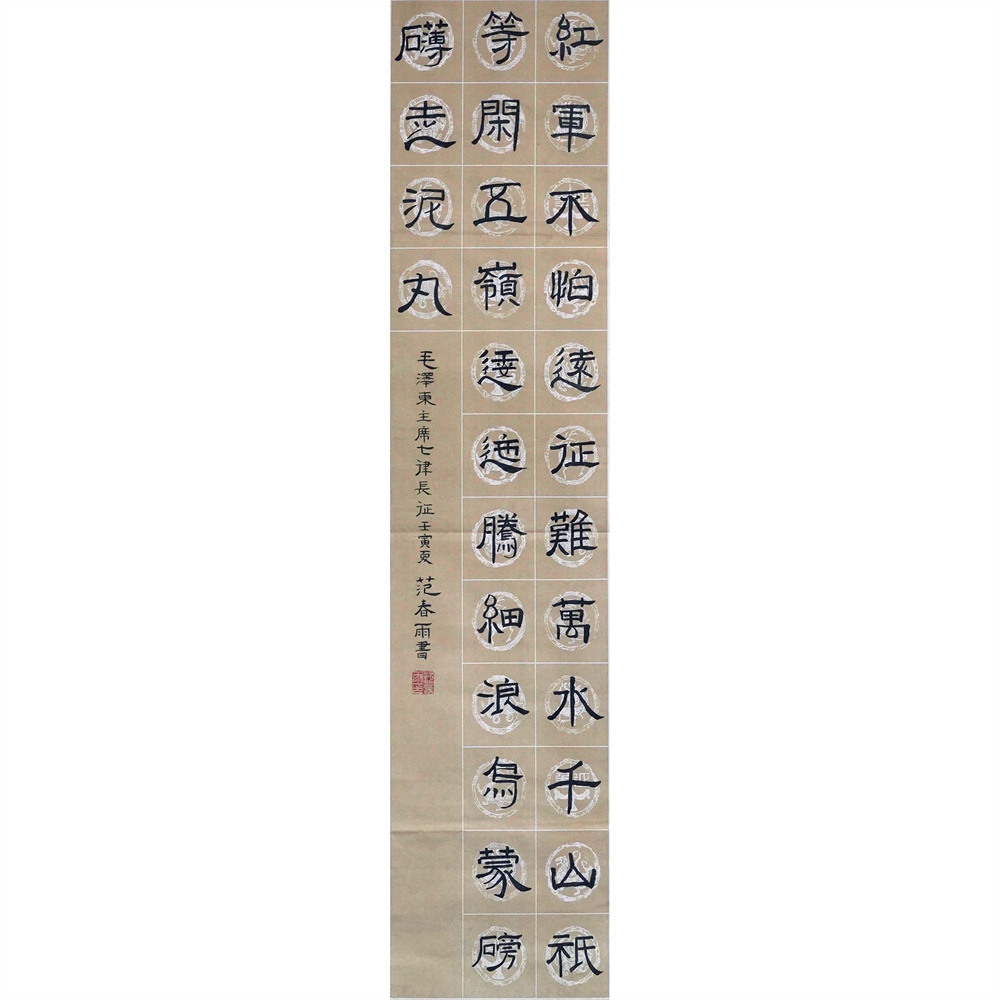 紅軍不怕遠征難萬水千山祇
等閑五嶺逶迤騰細浪烏蒙磅
礴走泥丸
毛澤東主席七律長征壬寅夏 范春雨書